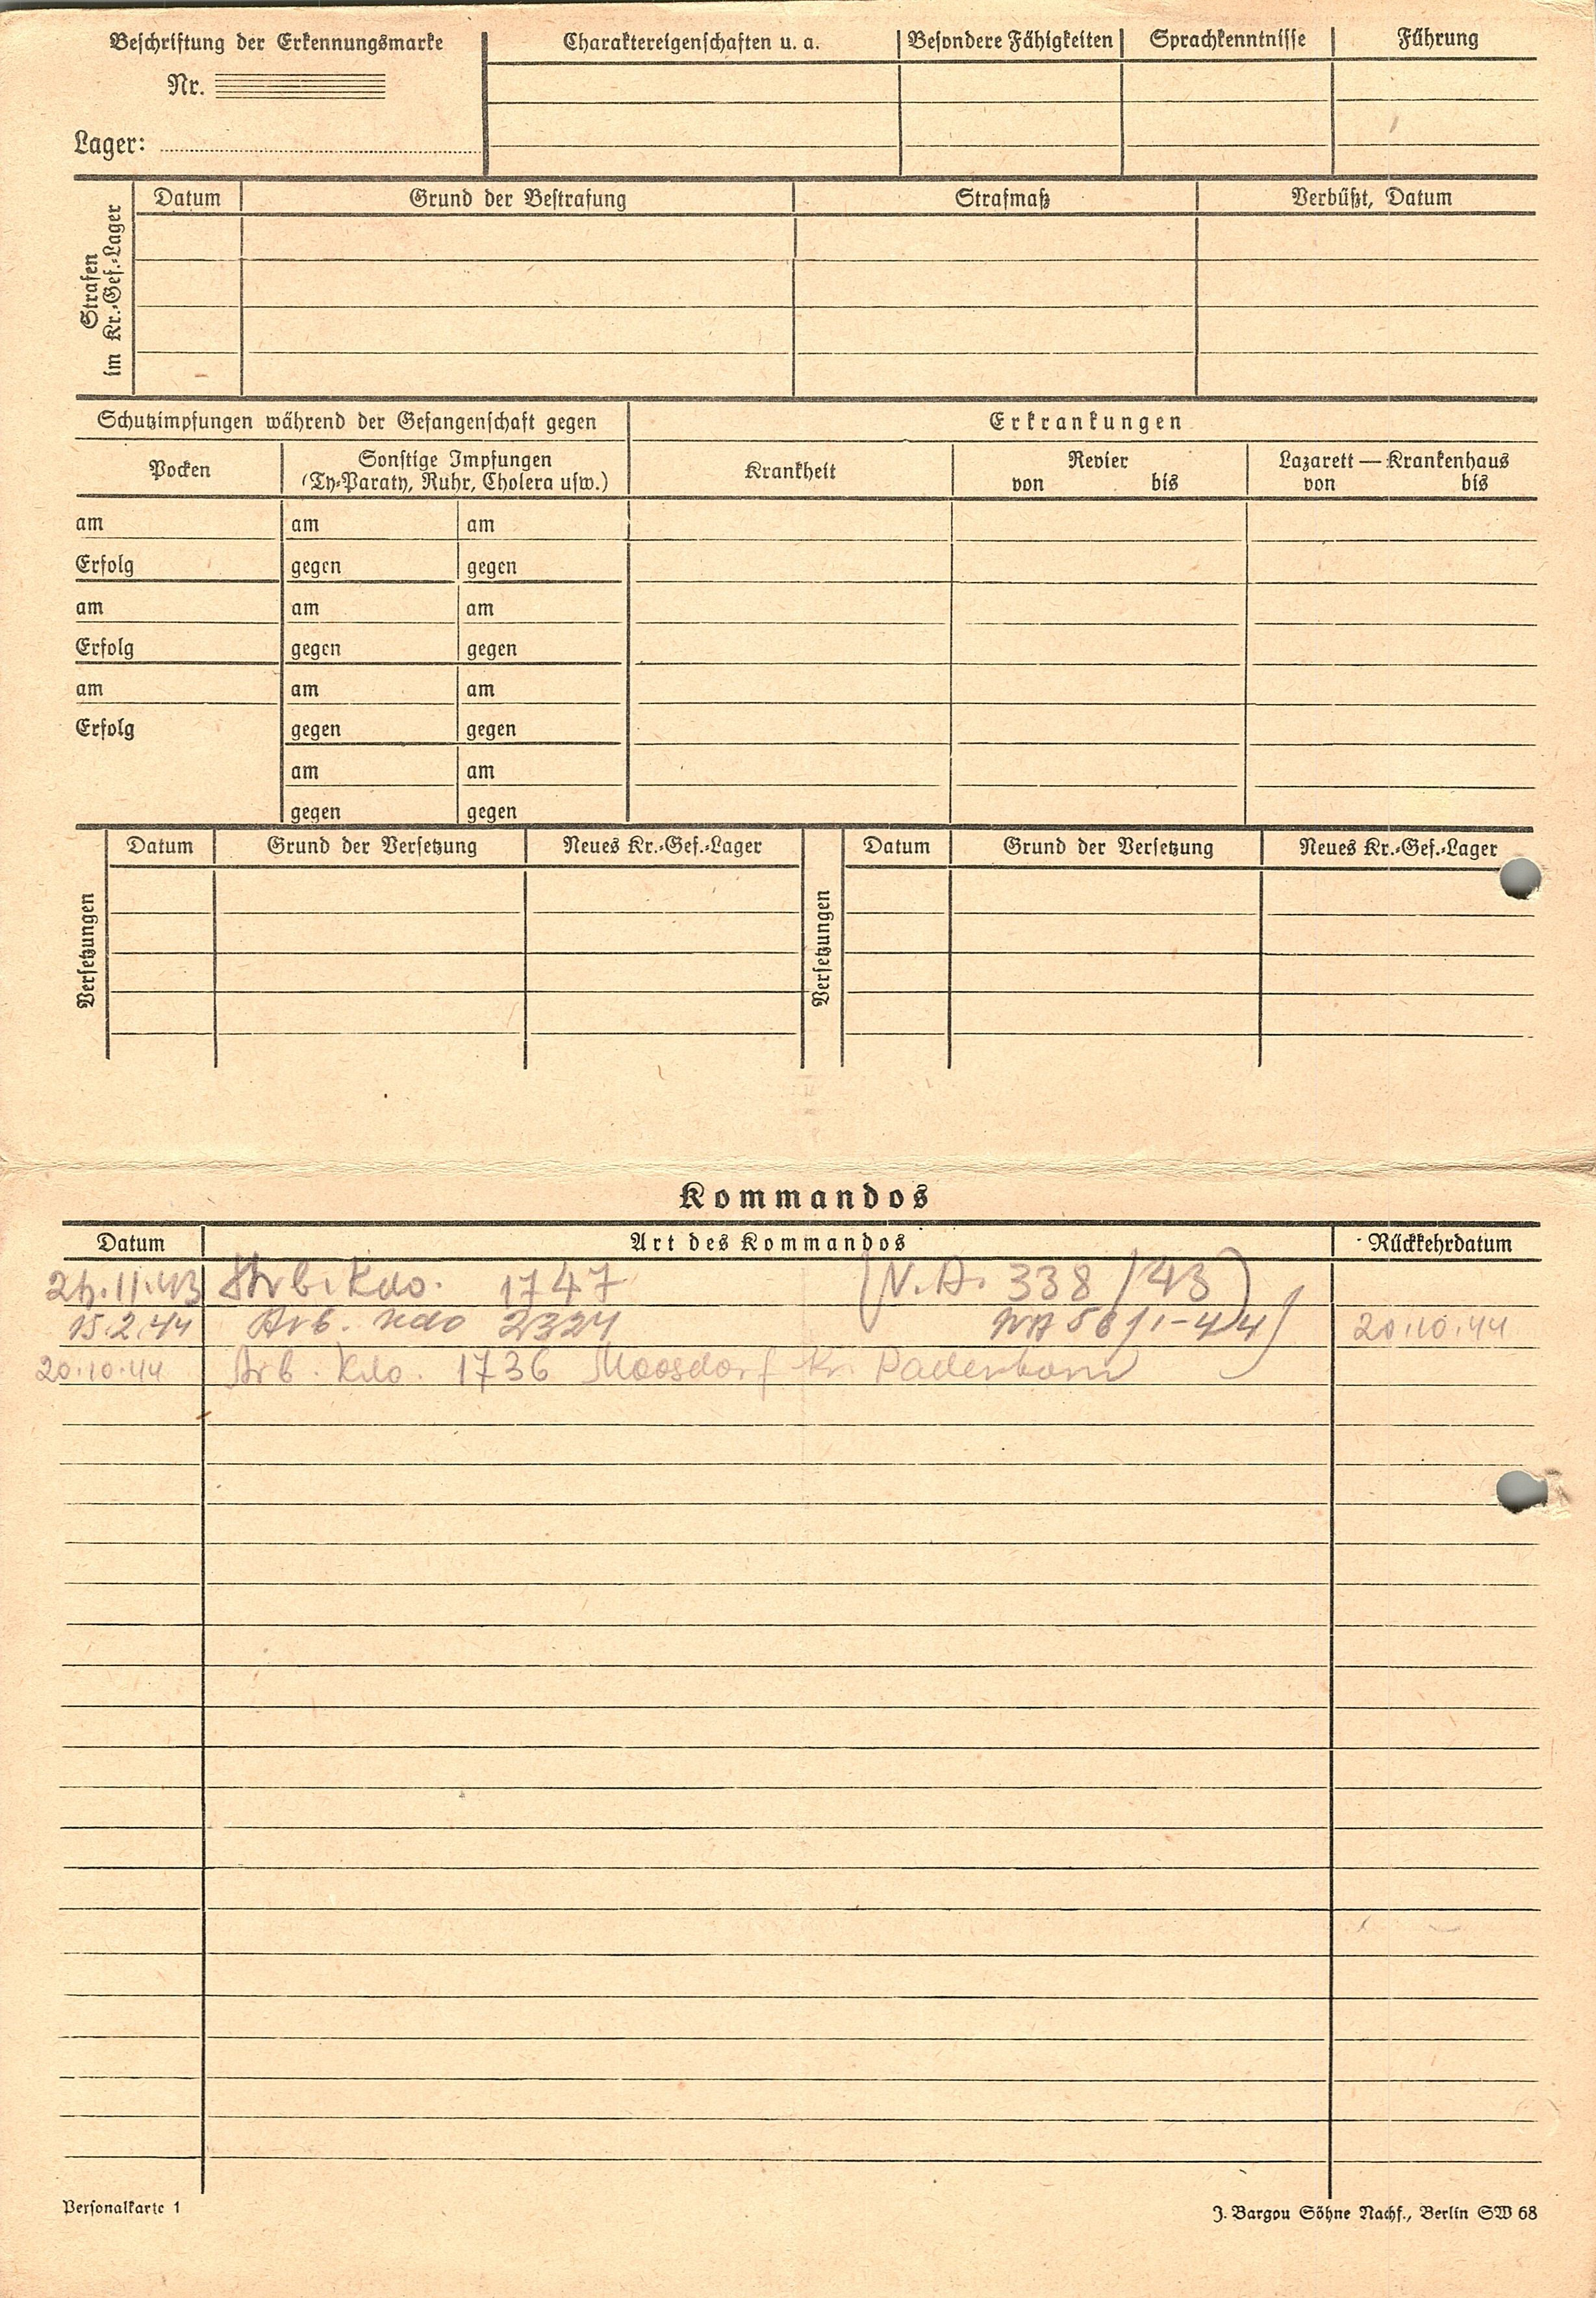 Beschriftung der Erkennungsmarke
Nr.
Lager:
Charaktereigenschaften u. a. Besondere Fähigkeiten Sprachkenntnisse Führung
Strafen
im Kr.-Gef.-Lager
Datum Grund der Bestrafung Strafmaß Verbüßt, Datum
Schutzimpfungen während der Gefangenschaft gegen
Erkrankungen
Pocken
Sonstige Impfungen
(Ty-Paraty, Ruhr, Cholera usw.)
Krankheit
Revier
von bis
Lazarett — Krankenhaus
von bis
am am am
Erfolg gegen gegen
am am am
Erfolg gegen gegen
am am am
Erfolg gegen gegen
am am
gegen gegen
Versetzungen
Datum Grund der Versetzung Neues Kr.-Gef.-Lager
Versetzungen
Datum Grund der Versetzung Neues Kr.-Gef.-Lager
Kommandos
Datum Art des Kommandos Rückkehrdatum
11.43 Arb. Kdo. 1747 (N.A. 338/43)
15.2.44 Arb. Kdo 2324 44 20.10.44
20.10.44 Arb. Kdo. 1736 Moosdorf Kr. Paderborn
Personalkarte 1
J. Bargou Söhne Nachf., Berlin SW 68